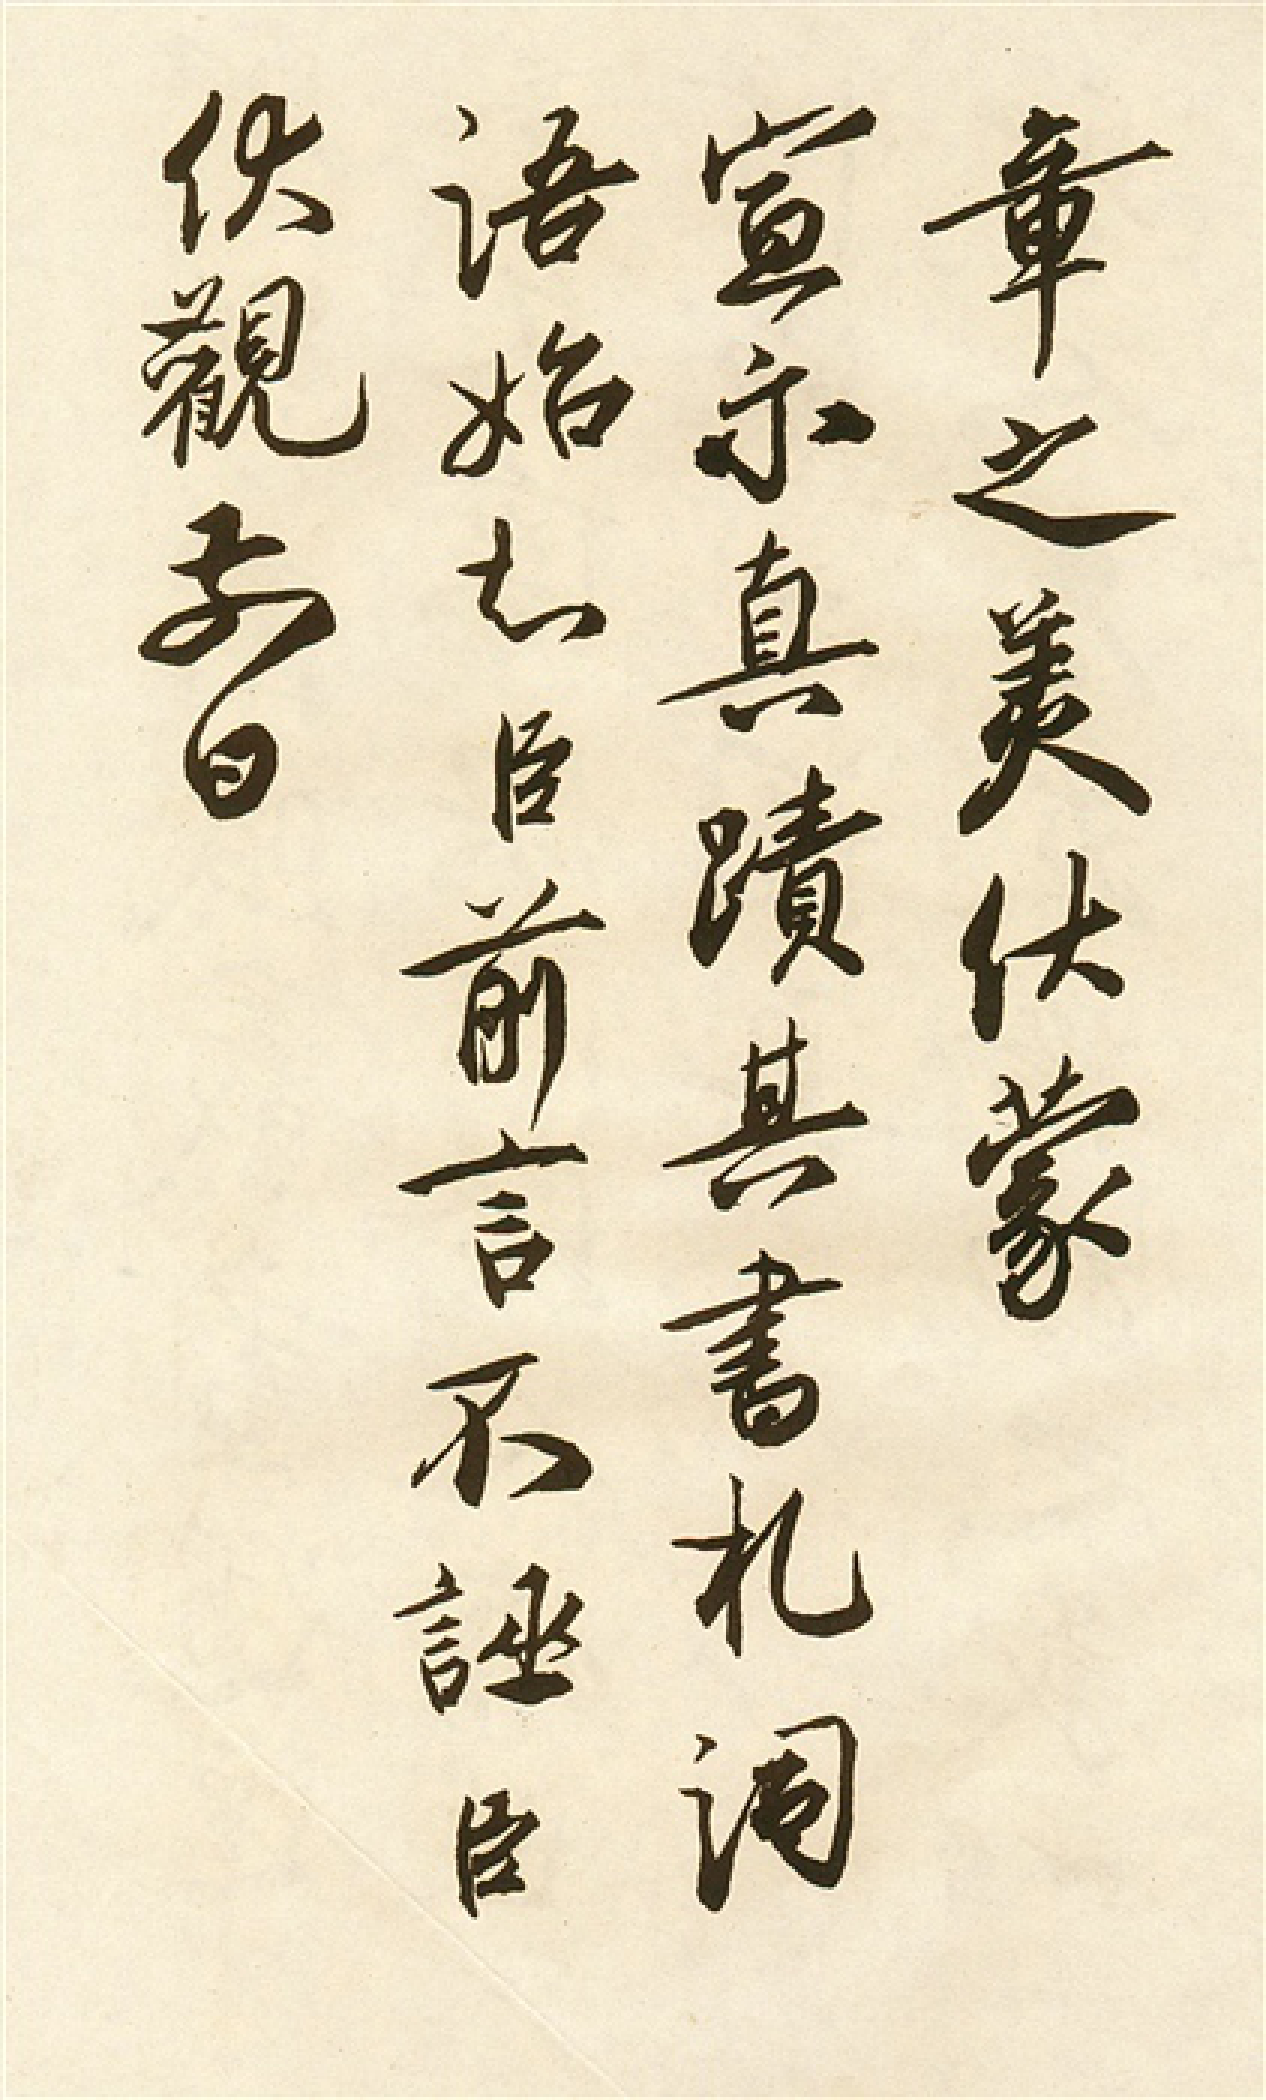 章之美伏蒙
宣示真蹟其書札詞
語始知臣前言不誣臣
伏觀